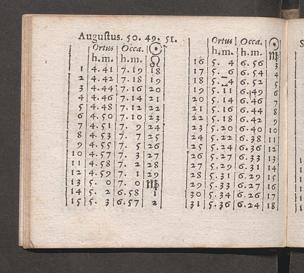 Augustus. 50. 49. 51.
Ortus Occa. ☉
h.m. h.m. ♌
1 4.41 7.19 18
2 4.42 7.18 19
3 4.44 7.16 20
4 4.46 7.14 21
5 4.48 7.12 22
6 4.50 7.10 23
7 4.51 7. 9
8 4.53 7. 7 25
9 4.55 7. 5 26
10 4.57 7. 3 27
11 4.58 7. 2 28
12 4.59 7. 1
13 5. 0 7. 0 ♍
14 5. 2 6.58 1
15 5. 3 6.57 2
Ortus Occa. ☉
h.m. h.m. ♍
16 5. 4 6.56 3
17 5. 6 6.54 4
18 5. 8 6.52 5
19 5.11 6.49 6
20 5.14 6.46 7
21 5.16 6.44 8
22 5.18 6.42 9
23 5.20 6.40 10
24 5.22 6.38 11
25 5.24 6.36 12
26 5.27 6.33 13
27 5.29 6.31 14
28 5.31 6.29 15
29 5.33 6.27 16
30 5.34 6.26
31 5.36 6.24 18